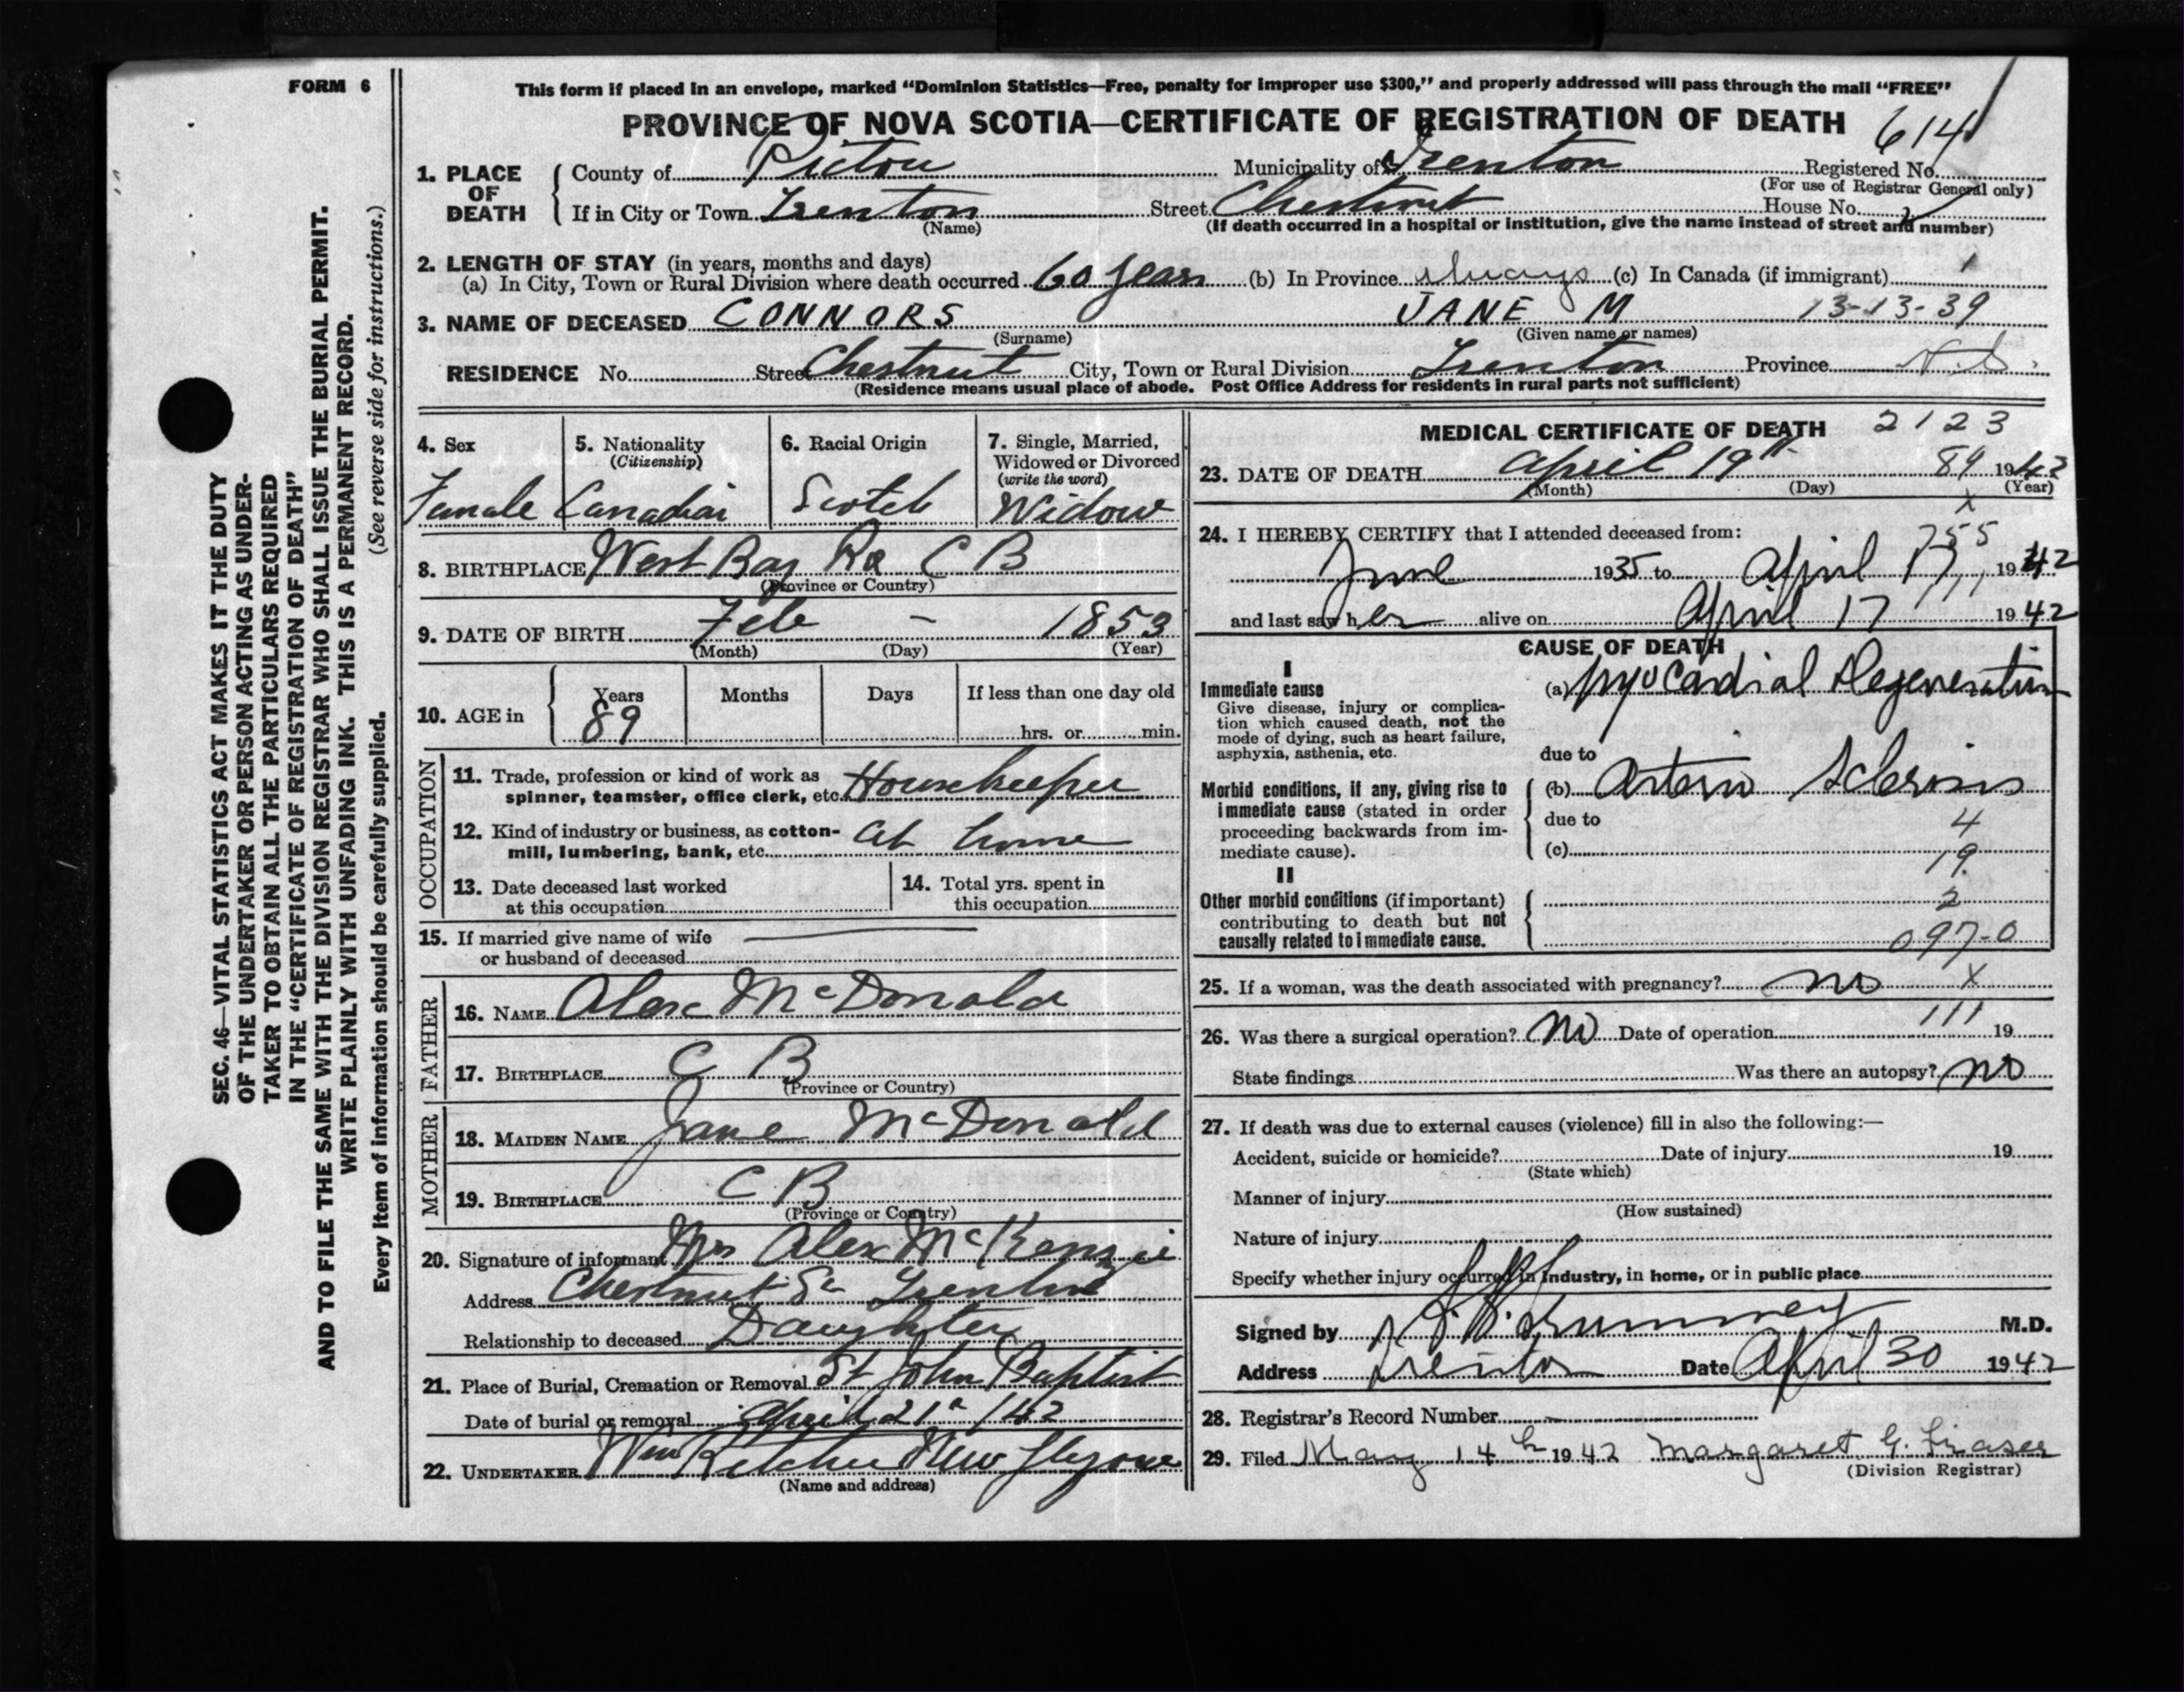 FORM 6
This form if placed in an envelope, marked "Dominion Statistics—Free, penalty for improper use $300," and properly addressed will pass through the mail "FREE"
PROVINCE OF NOVA SCOTIA—CERTIFICATE OF REGISTRATION OF DEATH 614
SEC. 46—VITAL STATISTICS ACT MAKES IT THE DUTY
OF THE UNDERTAKER OR PERSON ACTING AS UNDER-
TAKER TO OBTAIN ALL THE PARTICULARS REQUIRED
IN THE "CERTIFICATE OF REGISTRATION OF DEATH"
AND TO FILE THE SAME WITH THE DIVISION REGISTRAR WHO SHALL ISSUE THE BURIAL PERMIT.
WRITE PLAINLY WITH UNFADING INK. THIS IS A PERMANENT RECORD.
Every item of information should be carefully supplied. (See reverse side for instructions.)
1. PLACE OF DEATH County of Pictou Municipality of Trenton Registered No.
(For use of Registrar General only)
If in City or Town Trenton Street Chestnut House No.
(Name) (If death occurred in a hospital or institution, give the name instead of street and number)
2. LENGTH OF STAY (in years, months and days)
(a) In City, Town or Rural Division where death occurred 60 years (b) In Province always (c) In Canada (if immigrant) 1
3. NAME OF DECEASED CONNORS JANE M 13-13-39
(Surname) (Given name or names)
RESIDENCE No. Street Chestnut City, Town or Rural Division Trenton Province N.S.
(Residence means usual place of abode. Post Office Address for residents in rural parts not sufficient)
4. Sex 5. Nationality (Citizenship) 6. Racial Origin 7. Single, Married, Widowed or Divorced (write the word)
Female Canadian Scotch Widow
8. BIRTHPLACE West Bay Rd C B
(Province or Country)
9. DATE OF BIRTH Feb – 1853
(Month) (Day) (Year)
10. AGE in Years Months Days If less than one day old
89 hrs. or min.
OCCUPATION
11. Trade, profession or kind of work as
spinner, teamster, office clerk, etc. Housekeeper
12. Kind of industry or business, as cotton-
mill, lumbering, bank, etc. At home
13. Date deceased last worked
at this occupation
14. Total yrs. spent in
this occupation
15. If married give name of wife
or husband of deceased
FATHER
16. NAME Alex McDonald
17. BIRTHPLACE C B
(Province or Country)
MOTHER
18. MAIDEN NAME Jane McDonald
19. BIRTHPLACE C B
(Province or Country)
20. Signature of informant Mrs Alex McKenzie
Address Chestnut St Trenton
Relationship to deceased Daughter
21. Place of Burial, Cremation or Removal St John Baptist
Date of burial or removal April 21 /42
22. UNDERTAKER Wm New Glasgow
(Name and address)
MEDICAL CERTIFICATE OF DEATH 2123
23. DATE OF DEATH April 19th 89 1942
(Month) (Day) (Year)
x
24. I HEREBY CERTIFY that I attended deceased from: 755
June 1935 to April 17, 1942
111
and last saw her alive on April 17 1942
CAUSE OF DEATH
I
Immediate cause
Give disease, injury or complica-
tion which caused death, not the
mode of dying, such as heart failure,
asphyxia, asthenia, etc.
(a) Myocardial Degeneration
due to
Morbid conditions, if any, giving rise to
immediate cause (stated in order
proceeding backwards from im-
mediate cause).
(b) Arterio Sclerosis
due to 4
(c) 19
II
Other morbid conditions (if important)
contributing to death but not
causally related to immediate cause.
2
097-0
25. If a woman, was the death associated with pregnancy? no x
26. Was there a surgical operation? No Date of operation 111 19
State findings Was there an autopsy? no
27. If death was due to external causes (violence) fill in also the following:—
Accident, suicide or homicide? Date of injury 19
(State which)
Manner of injury
(How sustained)
Nature of injury
Specify whether injury occurred in industry, in home, or in public place
Signed by M.D.
Address Trenton Date April 30 1942
28. Registrar's Record Number
29. Filed May 14th 1942 Margaret G. Fraser
(Division Registrar)